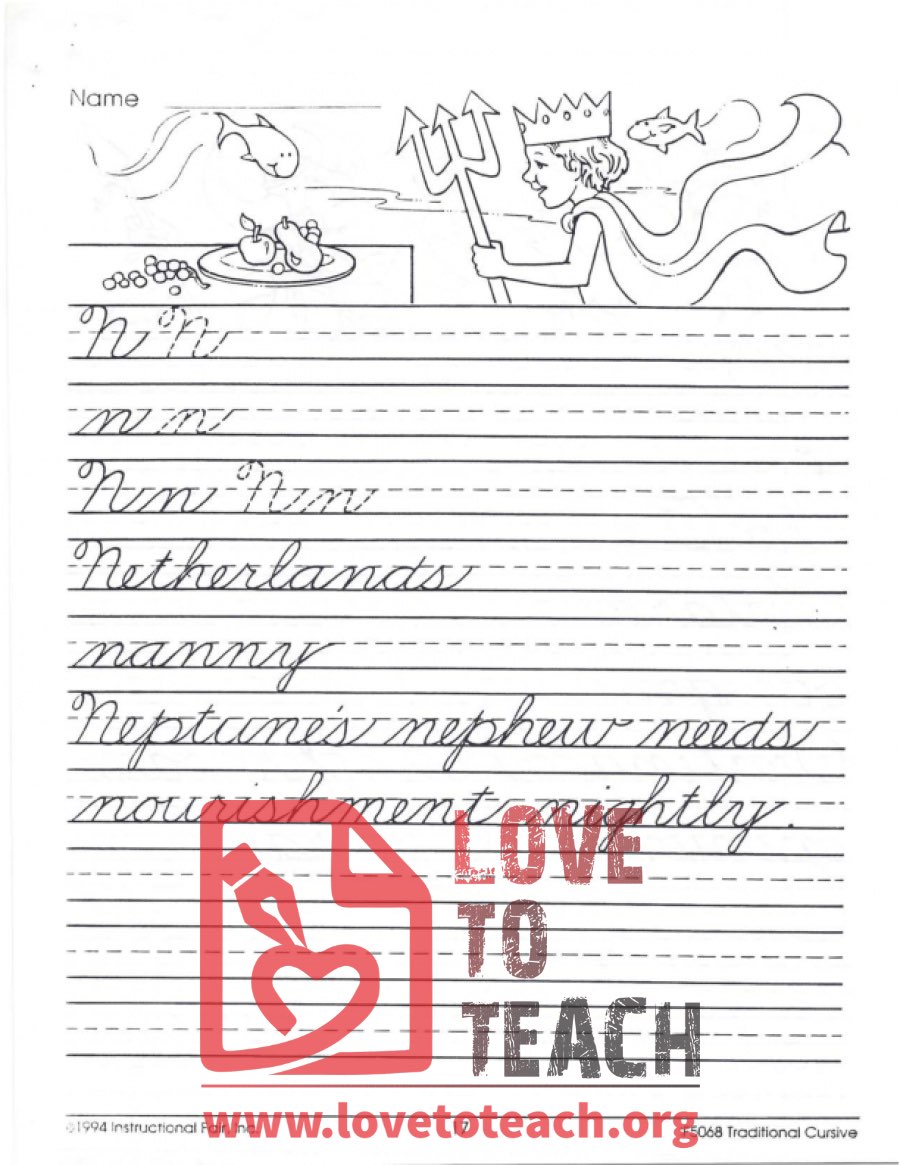 Name
N N
n n
Nn Nn
Netherlands
nanny
Neptune's nephew needs
nourishment nightly.
LOVE
TO
TEACH
www.lovetoteach.org
©1994 Instructional Fair, Inc. 17 IF5068 Traditional Cursive